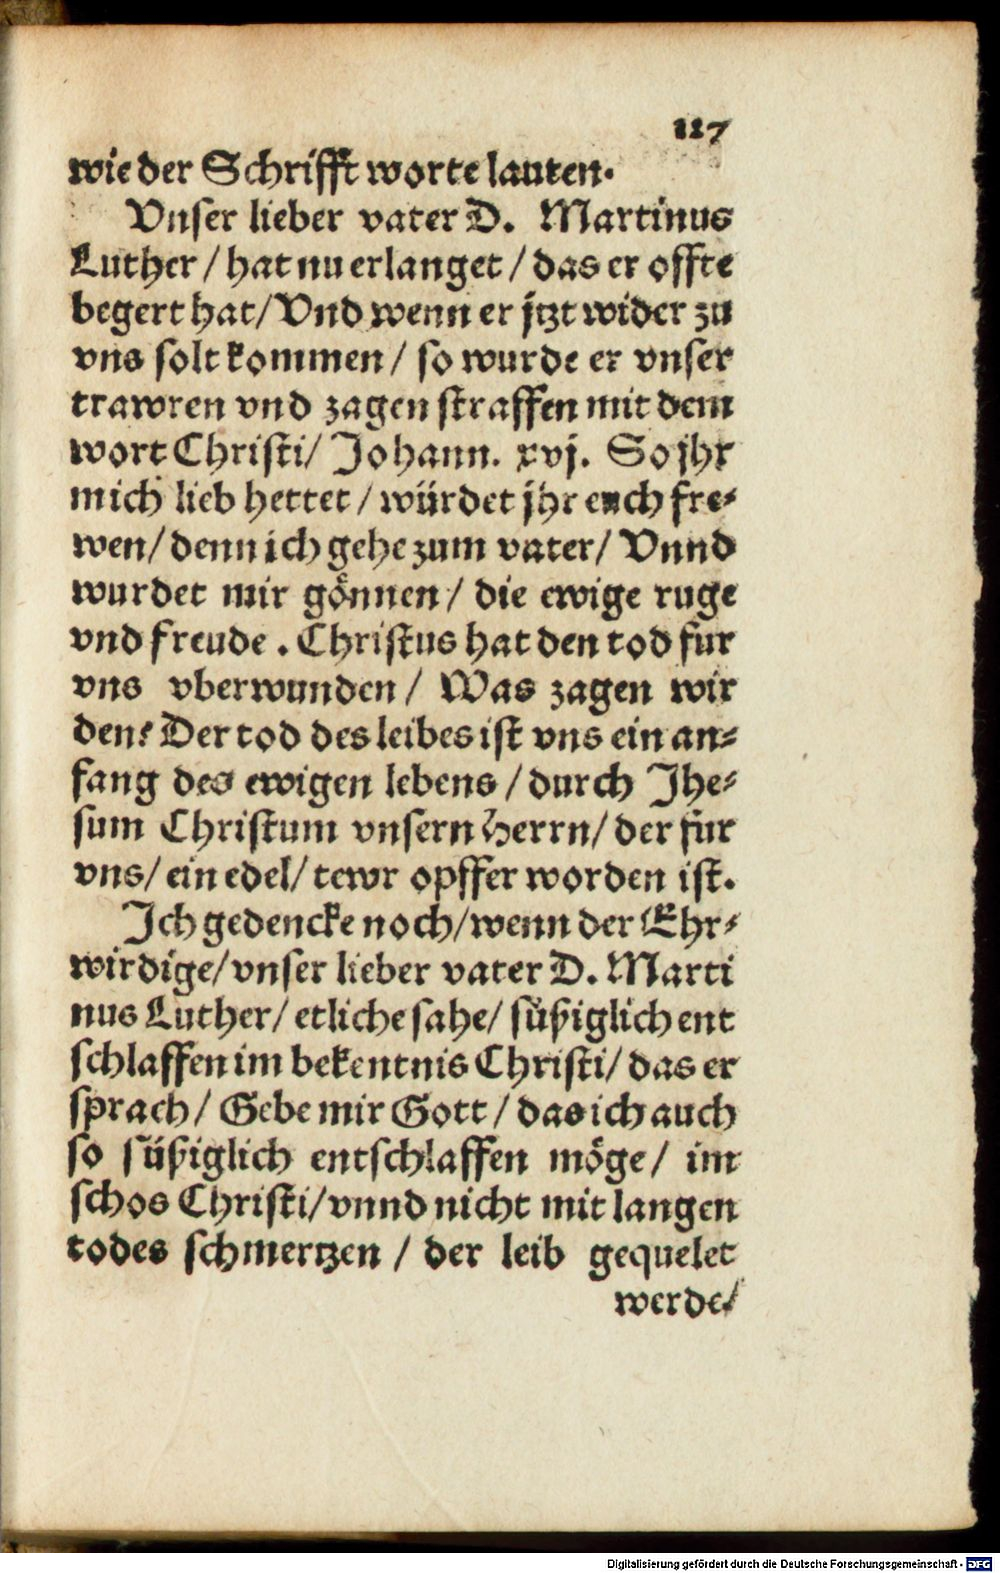 127
wie der Schrifft worte lauten.
Vnser lieber vater D. Martinus
Luther / hat nu erlanget / das er offte
begert hat / Vnd wenn er jtzt wider zu
vns solt kommen / so wurde er vnser
trawren vnd zagen straffen mit dem
wort Christi / Johann. xvj. So jhr
mich lieb hettet / würdet jhr euch fre-
wen / denn ich gehe zum vater / Vnnd
wurdet mir gönnen / die ewige ruge
vnd freude . Christus hat den tod fur
vns vberwunden / Was zagen wir
den? Der tod des leibes ist vns ein an-
fang des ewigen lebens / durch Jhe-
sum Christum vnsern Herrn / der für
vns / ein edel / tewr opffer worden ist.
Ich gedencke noch / wenn der Ehr-
wirdige / vnser lieber vater D. Marti
nus Luther / etliche sahe / süßiglich ent
schlaffen im bekentnis Christi / das er
sprach / Gebe mir Gott / das ich auch
so süßiglich entschlaffen möge / im
schos Christi / vnnd nicht mit langen
todes schmertzen / der leib gequelet
werde /
Digitalisierung gefördert durch die Deutsche Forschungsgemeinschaft - DFG